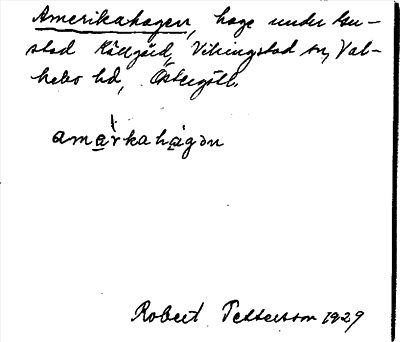 Amerikahagen, hage under Gu-
stad Källgård, Vikingstad sn, Val-
kebo hd, Östergötl.
amàrkahágən
Robert Pettersson 1929